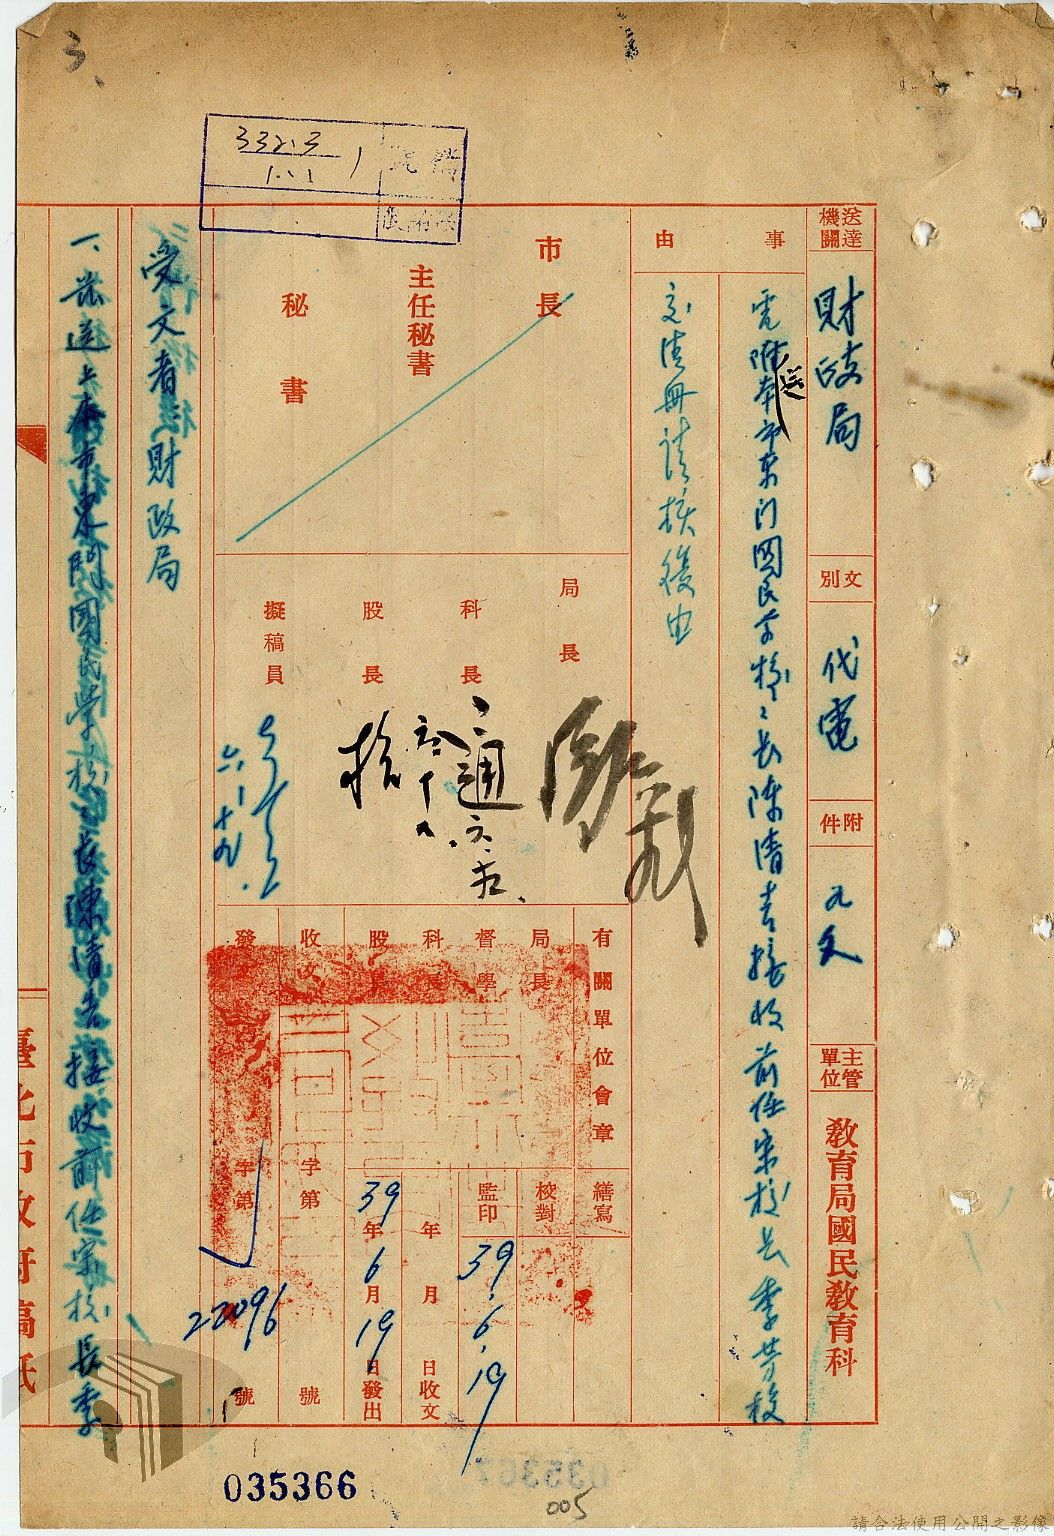 3、
332.3
1.1
1
送達機關
財政局
文別
代電
附件
九文
主管單位
教育局國民教育科
事由
電附送本市東門國民學校校長陳清吉接收前任宋校長季芳移
交清冊請核復由
市長
主任秘書
秘書
局長
科長
股長
擬稿員
六、十九.
有關單位會章
局長
督學
科長
股長
收文
字第
號
發文
字第
22096
號
繕寫
校對
監印
39.6.19
年 月 日收文
39年6月19日發出
受文者財政局
一、茲送上本市東門國民學校校長陳清吉接收前任宋校長季
臺北市政府稿紙
035366
005
請合法使用公開之影像